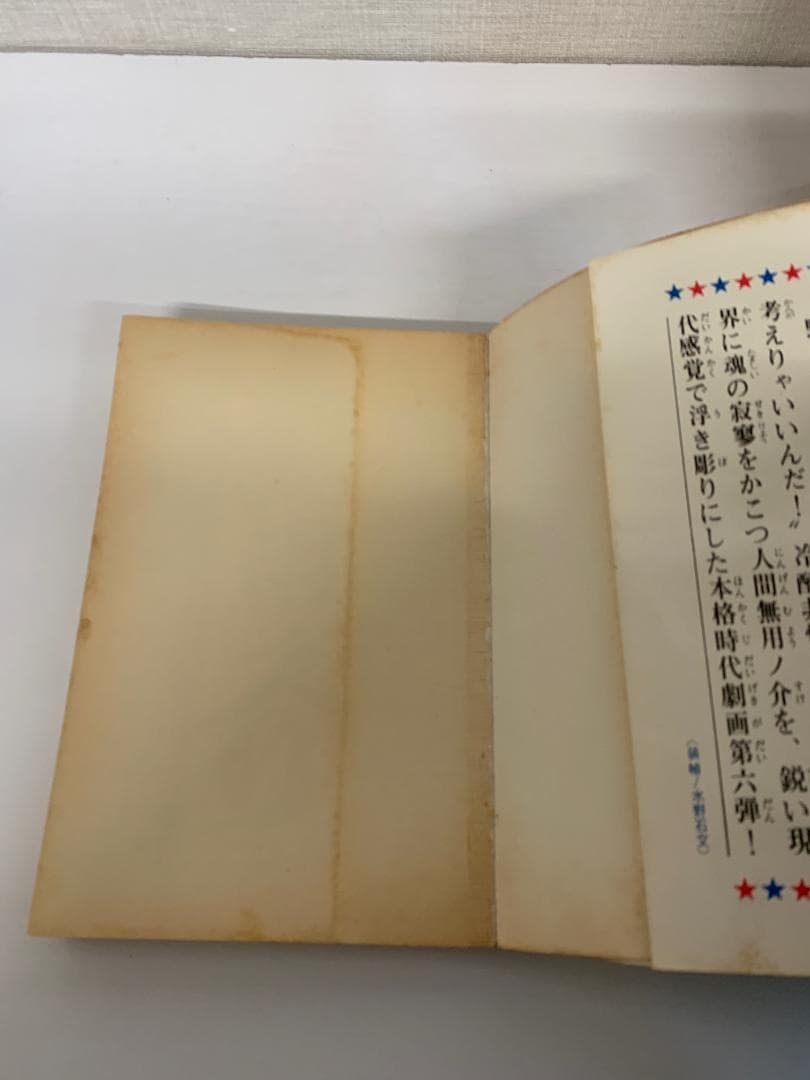 考えりゃいいんだ！〟冷酷
界に魂の寂寥をかこつ人間無用ノ介を、鋭い現
代感覚で浮き彫りにした本格時代劇画第六弾！
（装幀／水野石文）